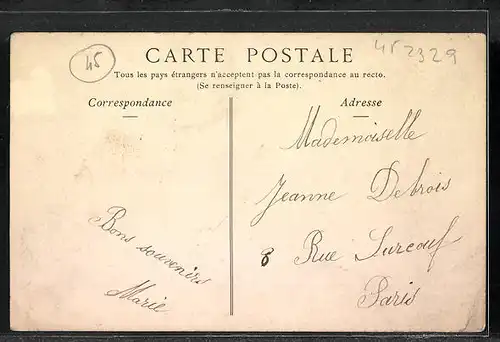 45
CARTE POSTALE
452329
Tous les pays étrangers n'acceptent pas la correspondance au recto.
(Se renseigner à la Poste).
Correspondance
Adresse
Bons souvenirs
Marie
Mademoiselle
Jeanne Debrois
8 Rue Surcouf
Paris